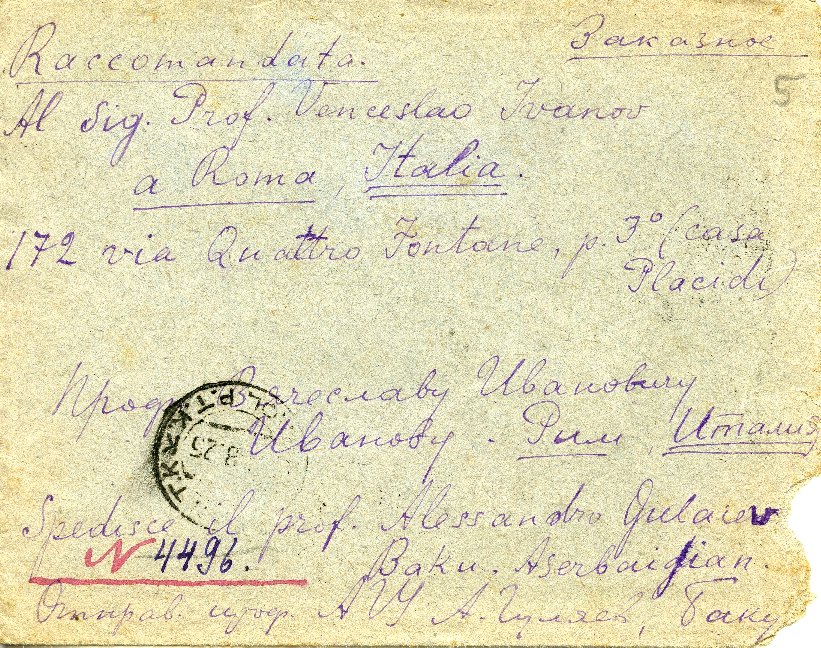 Raccomandata. Заказное
5
Al Sig. Prof. Venceslao Ivanov
a Roma, Italia.
172 via Quattro Fontane, p. 3° (casa
Placidi)
Проф. Вячеславу Ивановичу
Иванову. Рим Италия
Spedisce il prof. Alessandro Gulaiev
N 4496. Baku. Aserbaigian.
Отправ. проф. А. Гуляев, Баку